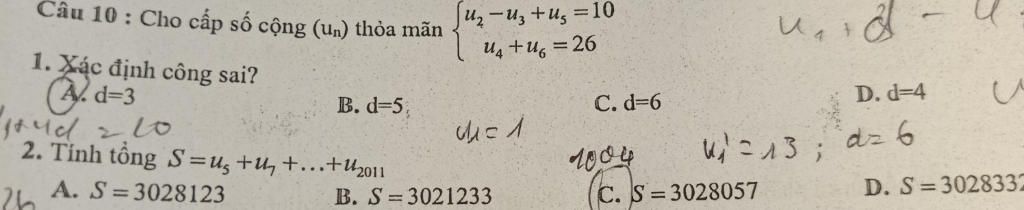 Câu 10 : Cho cấp số cộng (uₙ) thỏa mãn { u₂ − u₃ + u₅ = 10
u₄ + u₆ = 26
u₁ + d −
1. Xác định công sai?
A. d=3 B. d=5 C. d=6 D. d=4
+4d = 10
u₁ = 1
1004 u₁' = 13 ; d = 6
2. Tính tổng S = u₅ + u₇ + ... + u₂₀₁₁
26 A. S = 3028123 B. S = 3021233 C. S = 3028057 D. S = 3028332